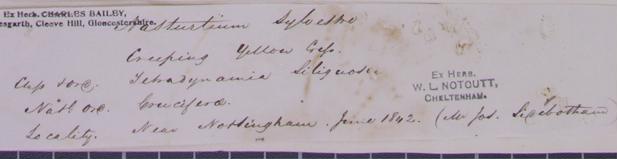 Ex Herb. CHARLES BAILEY,
esgarth, Cleeve Hill, Gloucestershire.
Nasturtium Sylvestre
Creeping Yellow Cress.
Class & ord. Tetradynamia Siliquosa
Natl ord. Cruciferæ.
Locality. Near Nottingham. June 1842. (Mr Jos. Sidebotham)
Ex Herb.
W. L. NOTCUTT,
CHELTENHAM.